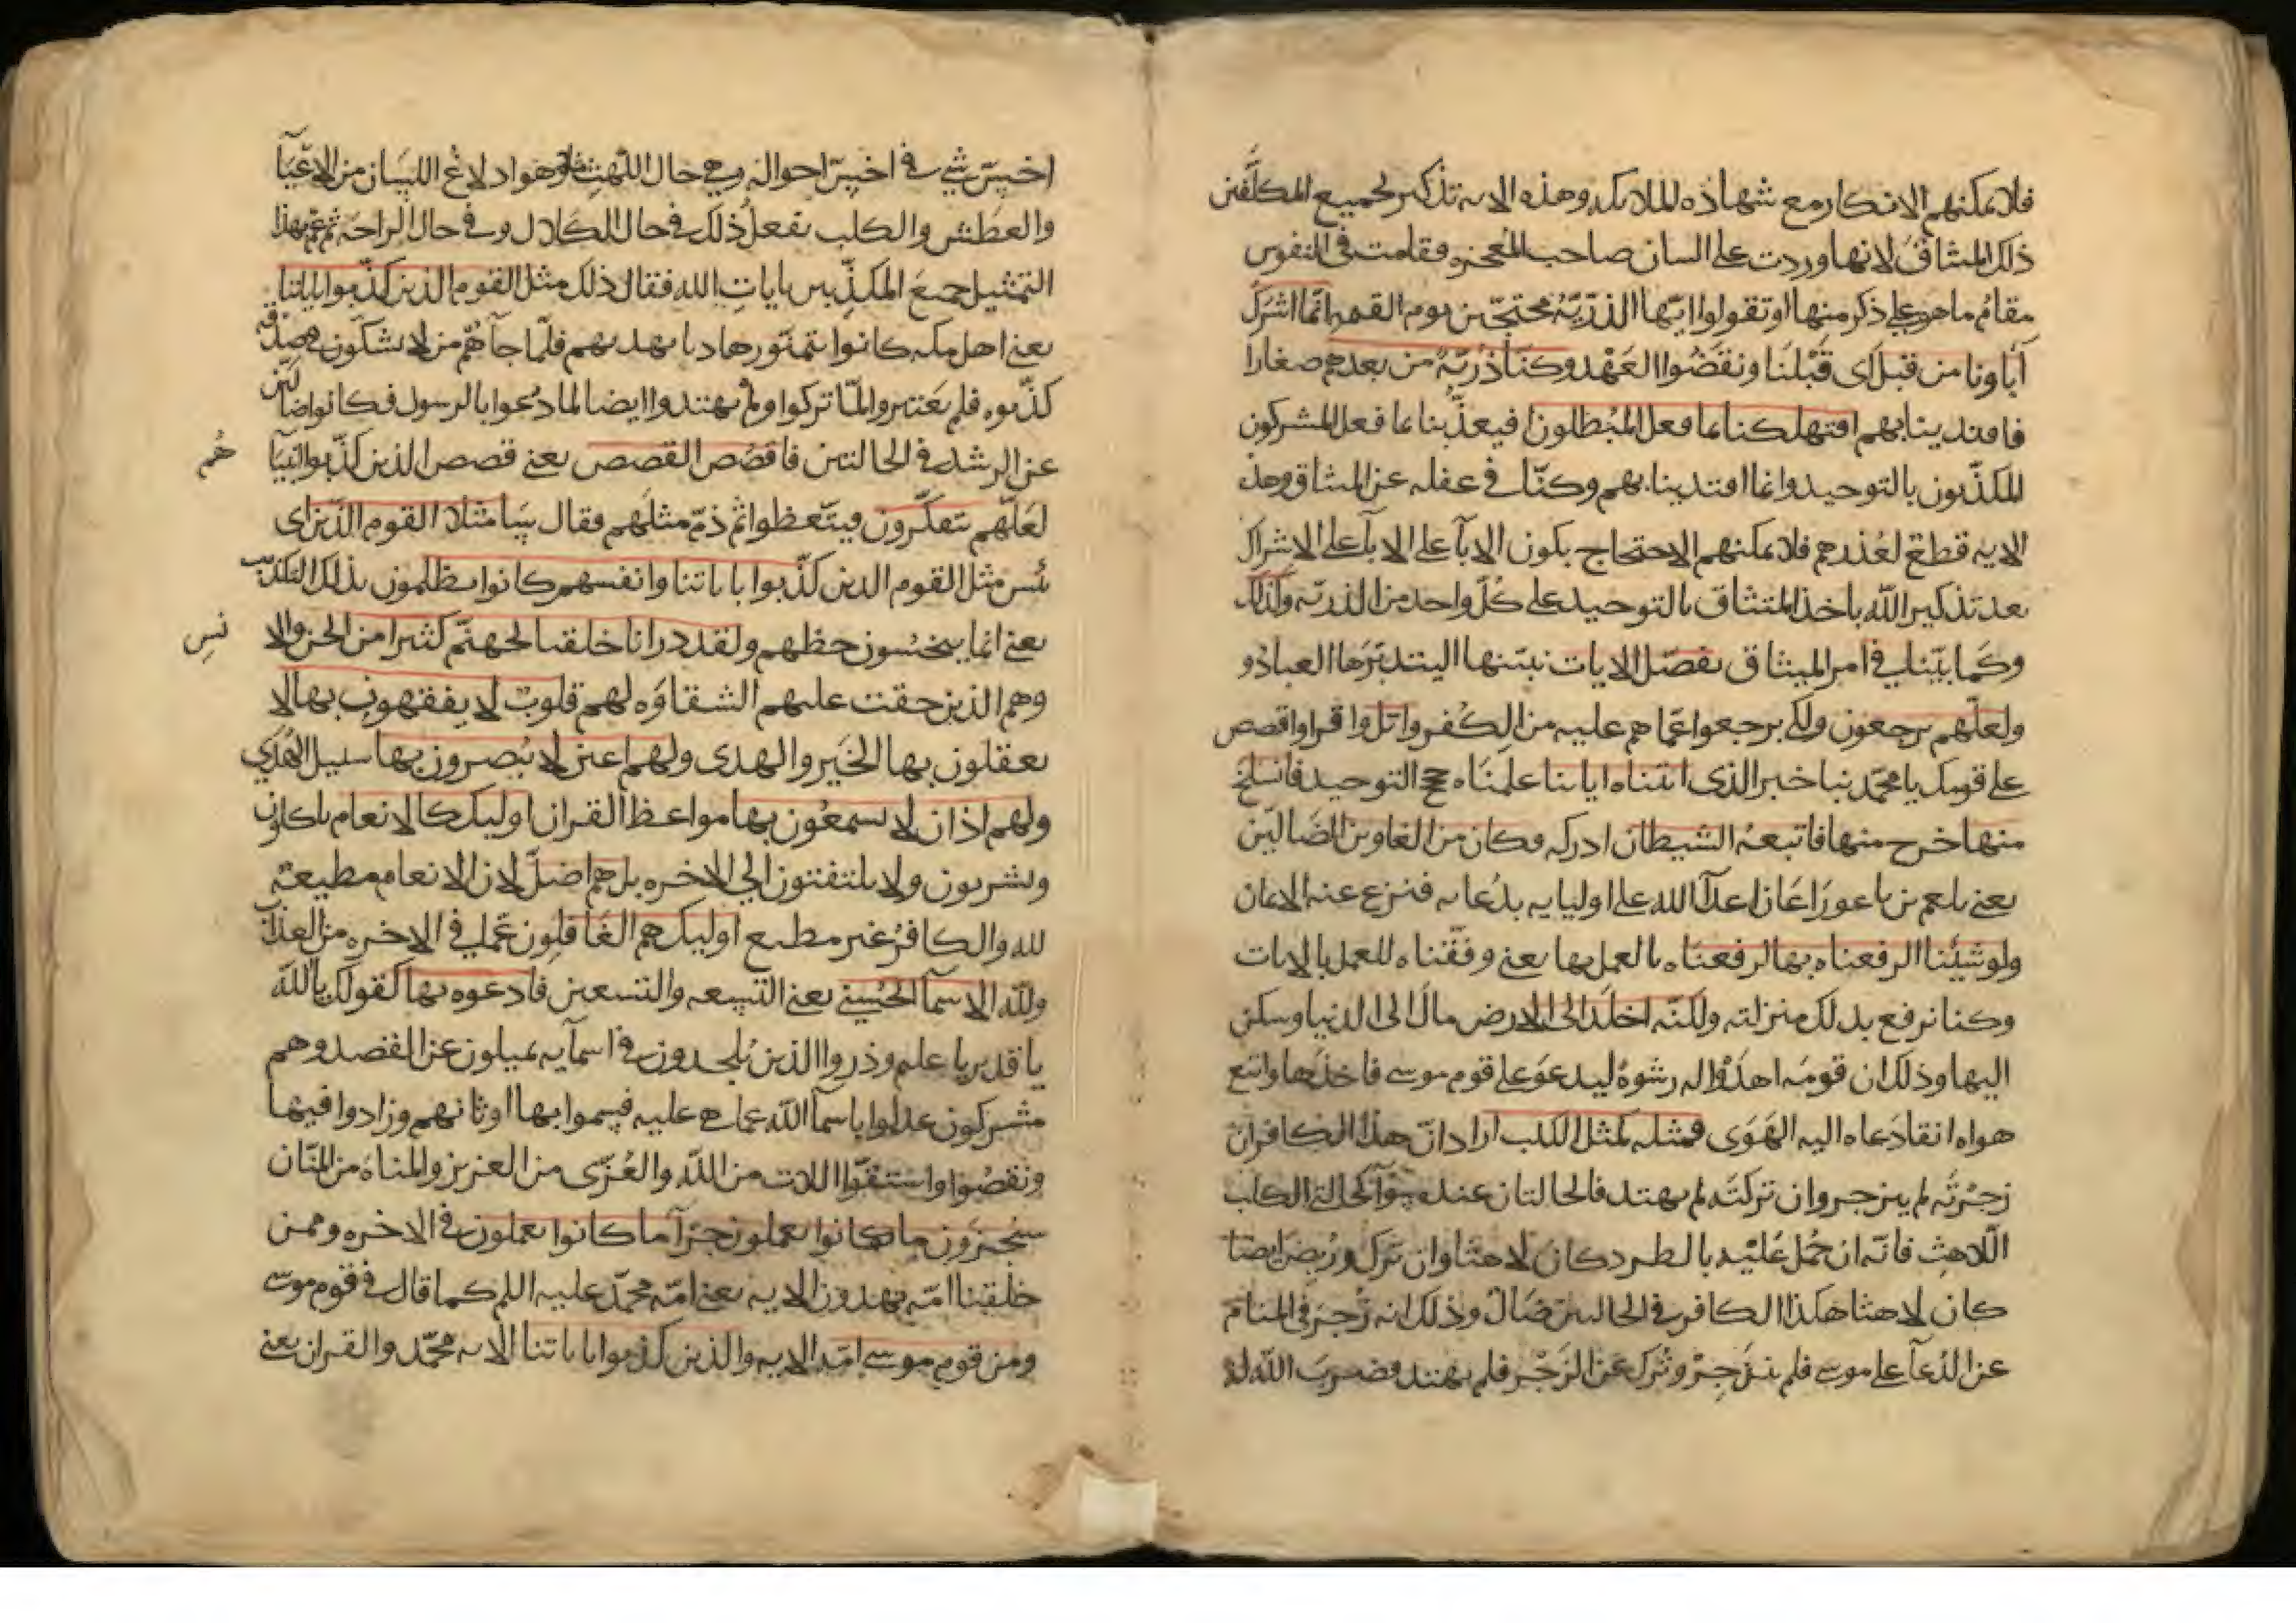 فلا يمكنهم الانكار مع شهاده الملايكه وهذه الايه تذكير لجميع المكلفين
ذلك الميثاق لانها وردت على لسان صاحب المعجزه وقامت في النفوس
مقام ما هو على ذكر منها او تقولوا ايها الذرّيّه محتجّين يوم القيمه انّما اشرك
آباونا من قبل اى قَبْلَنَا ونقَضُوا العَهْد وكنّا ذُرّيّهً من بعدهم صغارا
فاقتدينا بهم افتهلكنا بما فعل المُبْطلون افيعذّبنا بما فعل المشركون
المكذّبون بالتوحيد وانما اقتدينا بهم وكنّا في غفله عن الميثاق وهذه
الايه قطع لعُذرهم فلا يمكنهم الاحتجاج بكون الابآ على الاشراك
بعد تذكير الله باخذ الميثاق بالتوحيد على كُلّ واحد من الذريّه وكذلك
وكما بيّنا في امر الميثاق نفصّل الايات نبيّنها ليتدبّرها العباد و
ولعلّهم يرجعون ولكى يرجعوا عمّا هم عليه من الكُفر واتل واقرا واقصص
على قومك يا محمّد نبا خبر الذى اتيناه اياتنا علمنَاه حجج التوحيد فانسلخ
منها خرج منها فاتبعهُ الشيطان ادركه وكان من الغاوين الضالّين
يعنى بلعم بن باعورَا اعَان اعدآ الله على اوليايه بدُعايه فنزع عنه الايمان
ولو شئنا لرفعناه بها لرفعناه بالعمل بها يعنى وفّقناه للعمل بالايات
وكنا نرفع بذلك منزلته ولكنّه اخلد الى الارض مال الى الدنيا وسكن
اليها وذلك ان قومَه اهدَوْا له رشوهً ليدعوَ على قوم موسى فاخذها واتبع
هواه انقاد لما دعاه اليه الهَوَى فمثله كمثل الكلب اراد انّ هذا الكافر ان
زجَرْتَه لم ينزجر وان تركتَه لم يهتد فالحالتان عنده سَوآ كحالتى الكلب
اللّاهث فانّه ان حُمل عَليْه بالطرد كان لاهثا وان تُرك ورُبض ايضا
كان لاهثا هكذا الكافر في الحالتين ضالٌ وذلك انه زُجِرَ فى المنام
عن الدُعآ على موسى فلم ينزَجِرْ وتُرك عَن الزَجْر فلم يهتد فضَربَ الله له
اخسّ شى في اخسّ احواله وهى حال اللّهث مثلا وهو ادلاع اللسان من الاعيَآ
والعطش والكلب يفعلُ ذلك في حال الكلال وفي حال الراحَه ثم عمّ بهذا
التمثيل جميعَ المكذّبين بايات الله فقال ذلك مثل القوم الذين كذّبوا باياتنا
يعنى اهل مكه كانوا يتمنّون هاديا يهديهم فلمّا جآهُم من لا يشكّون في صدقه
كذّبوه فلم يهتدوا لمّا تركوا ولم يهتدوا ايضا لما دُعوا بالرسول فكانوا ضالين
عن الرشد في الحالتين فاقصُص القصص يعنى قصص الذين كذّبوا انبيَآ
هُم
لعَلّهم يتفكّرون فيتّعظوا ثم ذمّ مثلَهم فقال سَا مثلا القوم الّذين اى
بئس مثل القوم الذين كذّبوا باياتنا وانفسهم كانوا يظلمون بذلك التكذيب
يعنى انما يبخسُون حظهم ولقد ذرانا خلقنا لجهنّم كثيرا من الجن والا
نسِ
وهم الذين حقت عليهم الشقاوَه لهم قلوبٌ لا يفقهون بها لا
يعقلون بها الخَير والهدى ولهم اعين لا يُبصرون بها سبيل الهُدَي
ولهم اذان لا يسمعُون بها مواعظ القران اوليك كالانعام ياكلون
ويشربون ولا يلتفتون الي الاخره بل هم اضلّ لان الانعام مطيعة
لله والكافرُ غير مطيع اوليك هم الغَافِلُون عمّا لي في الاخره من العذاب
ولله الاسمآ الحُسنى يعنى التسعه والتسعين فادعوه بها كقولك يا اللّه
يا قدير يا عليم وذروا الذين يُلحدون في اسمآيه يميلون عن القصد وهم
مشركون عدلوا باسمآ اللّه عمّا هى عليه فسموا بها اوثانهم وزادوا فيها
ونقصُوا واشتقّوا اللات من اللّه والعُزّى من العزيز والمناهَ من المنّان
سيُجزَون ما كانوا يعملون جزآ ما كانوا يعملون في الاخره وممن
خلقنا امّه يهدون الايه يعنى امّه محمّد عليه السلم كما قال في قوم موسى
ومن قوم موسى امّه الايه والذين كذبوا باياتنا الايه محمّد والقران يعنى